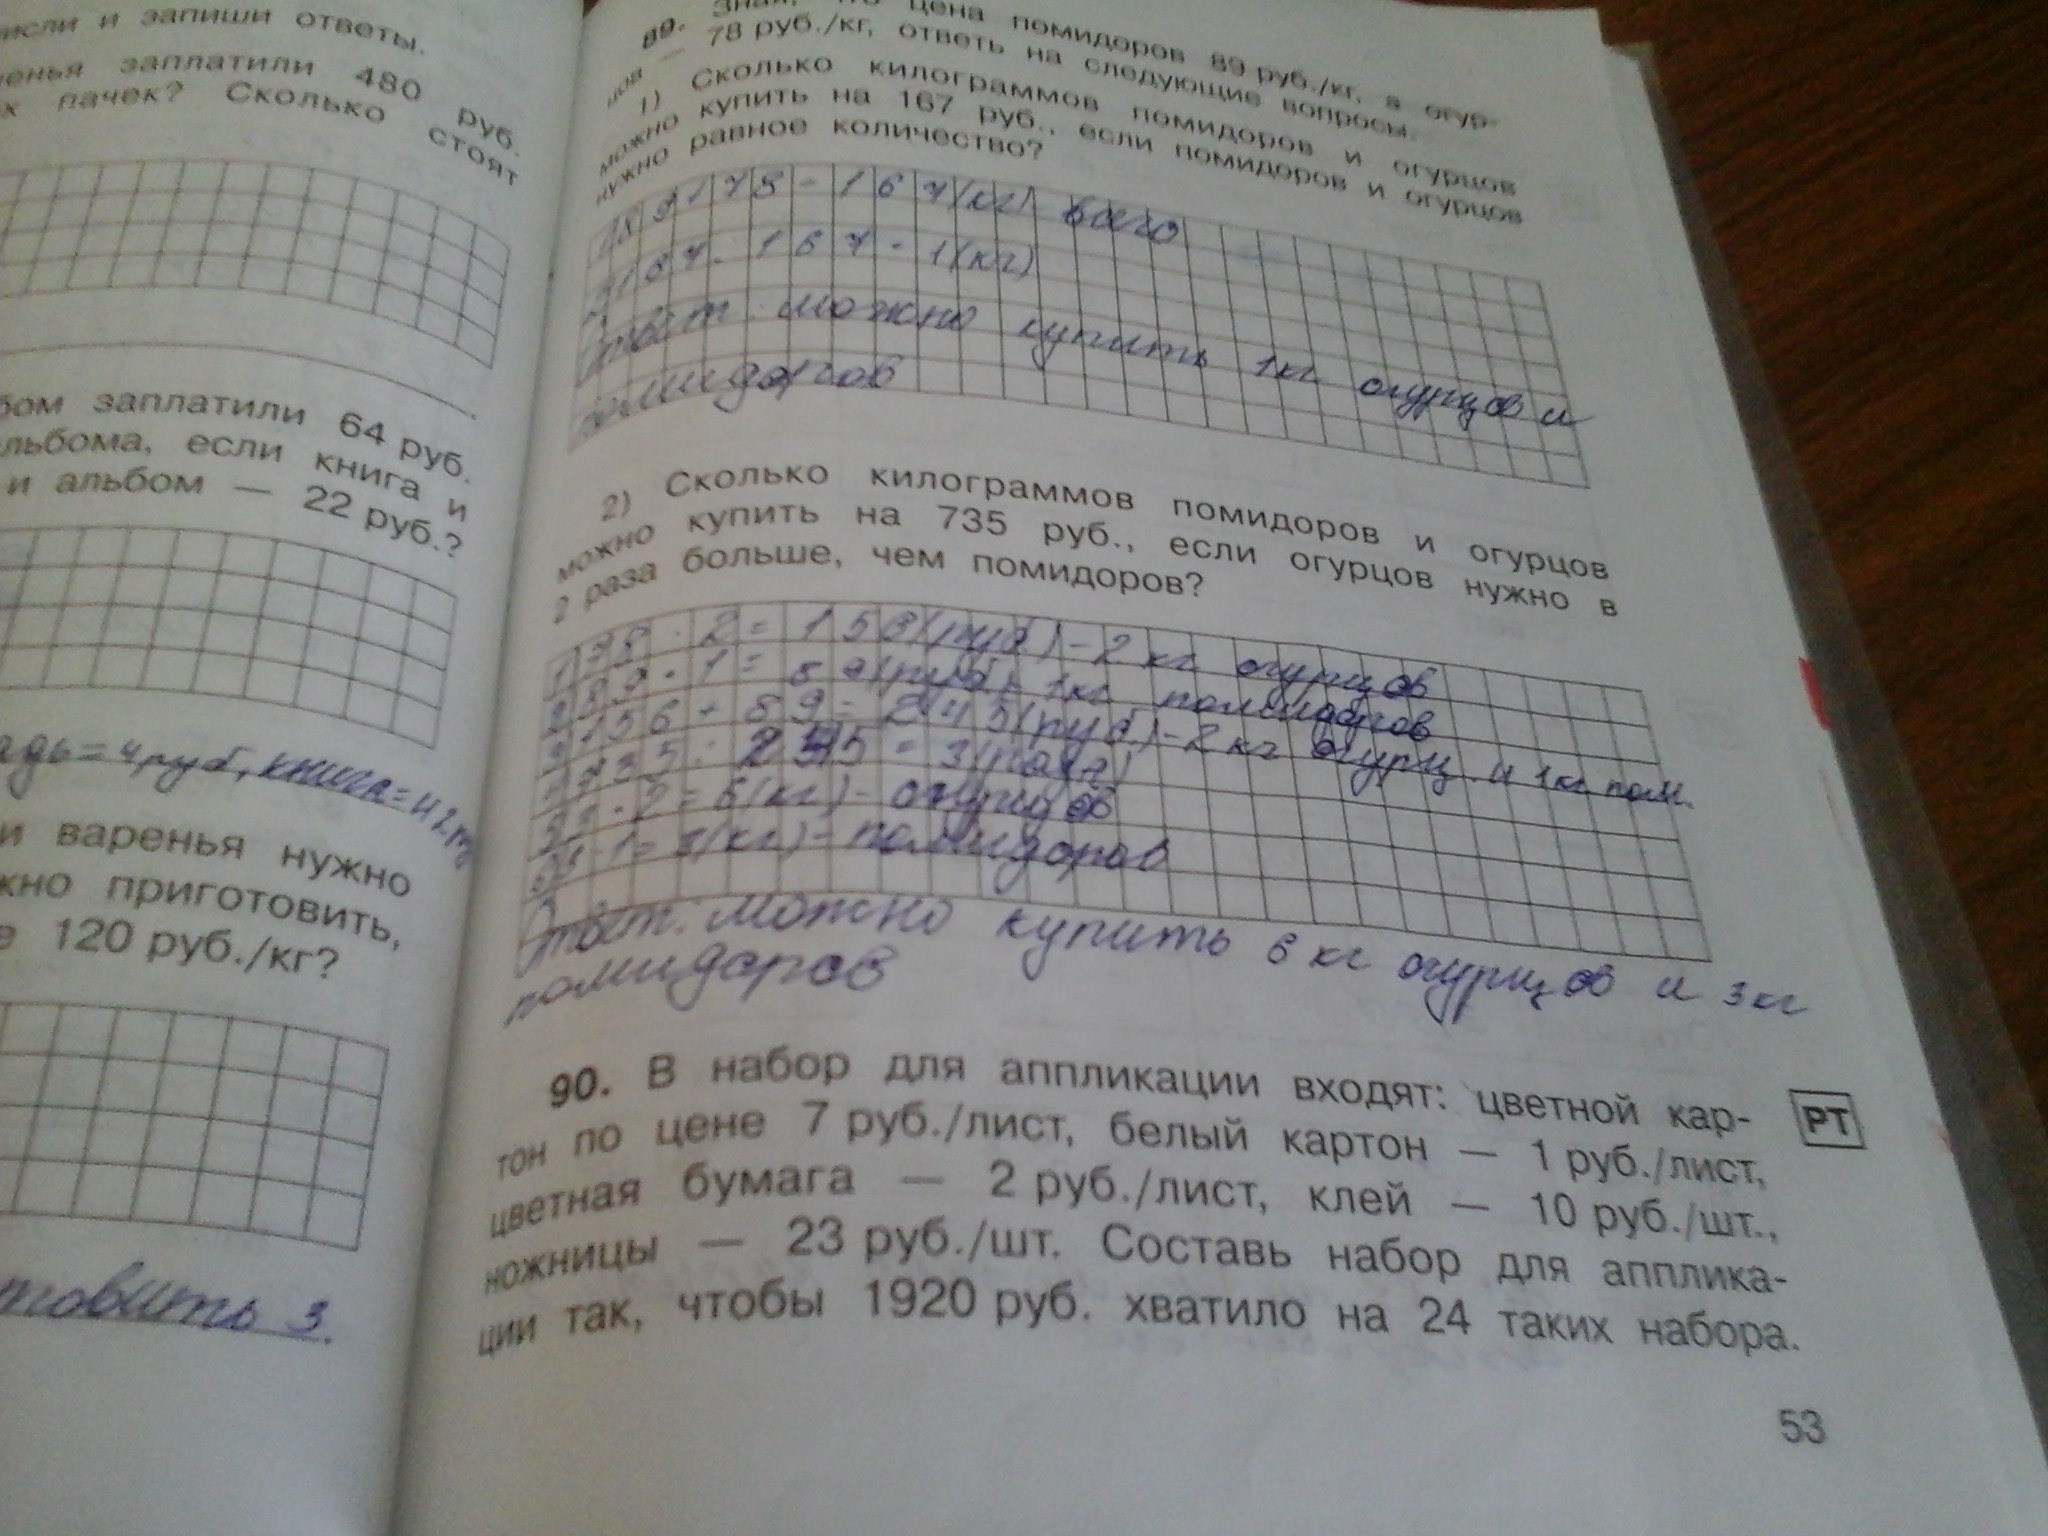 исли и запиши ответы.
енья заплатили 480 руб.
х пачек? Сколько стоят
бом заплатили 64 руб.
льбома, если книга и
и альбом — 22 руб.?
адь = 4 руб, книга = 42
и варенья нужно
жно приготовить,
е 120 руб./кг?
товить 3.
89. Зная, что цена помидоров 89 руб./кг, а огур-
цов — 78 руб./кг, ответь на следующие вопросы.
1) Сколько килограммов помидоров и огурцов
можно купить на 167 руб., если помидоров и огурцов
нужно равное количество?
1) 89 + 78 = 167 (кг) всего
2) 167 : 167 = 1 (кг)
Ответ: можно купить 1 кг огурцов и
помидоров
2) Сколько килограммов помидоров и огурцов
можно купить на 735 руб., если огурцов нужно в
2 раза больше, чем помидоров?
1) 78 · 2 = 156 (руб) – 2 кг огурцов
2) 89 · 1 = 89 (руб) – 1 кг помидоров
3) 156 + 89 = 245 (руб.) – 2 кг огурц. и 1 кг пом.
4) 735 : 245 = 3 (раза)
5) 3 · 2 = 6 (кг) – огурцов
6) 3 · 1 = 3 (кг) – помидоров
Ответ: можно купить 6 кг огурцов и 3 кг
помидоров
90. В набор для аппликации входят: цветной кар-
тон по цене 7 руб./лист, белый картон — 1 руб./лист,
цветная бумага — 2 руб./лист, клей — 10 руб./шт.,
ножницы — 23 руб./шт. Составь набор для апплика-
ции так, чтобы 1920 руб. хватило на 24 таких набора.
РТ
53